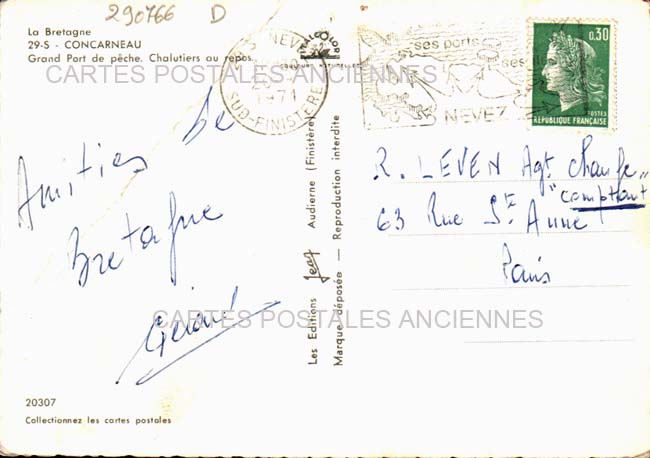 290766 D
La Bretagne
29-S - CONCARNEAU
Grand Port de pêche. Chalutiers au repos.
CARTES POSTALES ANCIENNES
NEVEZ
1971
SUD-FINISTERE
ses ports
NEVEZ
0,30
POSTES
REPUBLIQUE FRANÇAISE
Amitiés de
Bretagne
Gérard
Les Editions Jean Audierne (Finistère)
Marque déposée — Reproduction interdite
R. LEVEN Agt Change
"comptant"
63 Rue Ste Anne
Paris
CARTES POSTALES ANCIENNES
20307
Collectionnez les cartes postales